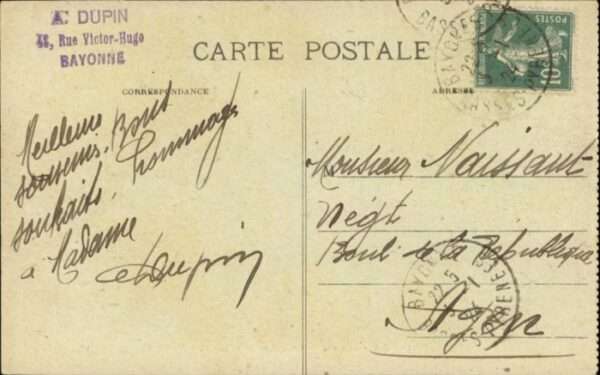 A. DUPIN
Rue Victor-Hugo
BAYONNE
CARTE POSTALE
CORRESPONDANCE
ADRESSE
POSTES
10
BAYONNE
Meilleurs
souvenirs. Bons
souhaits. Hommages
à Madame
A Dupin
Monsieur Naissant
Négt
Boul. de la République
Agen
BAYONNE
BSES PYRENEES